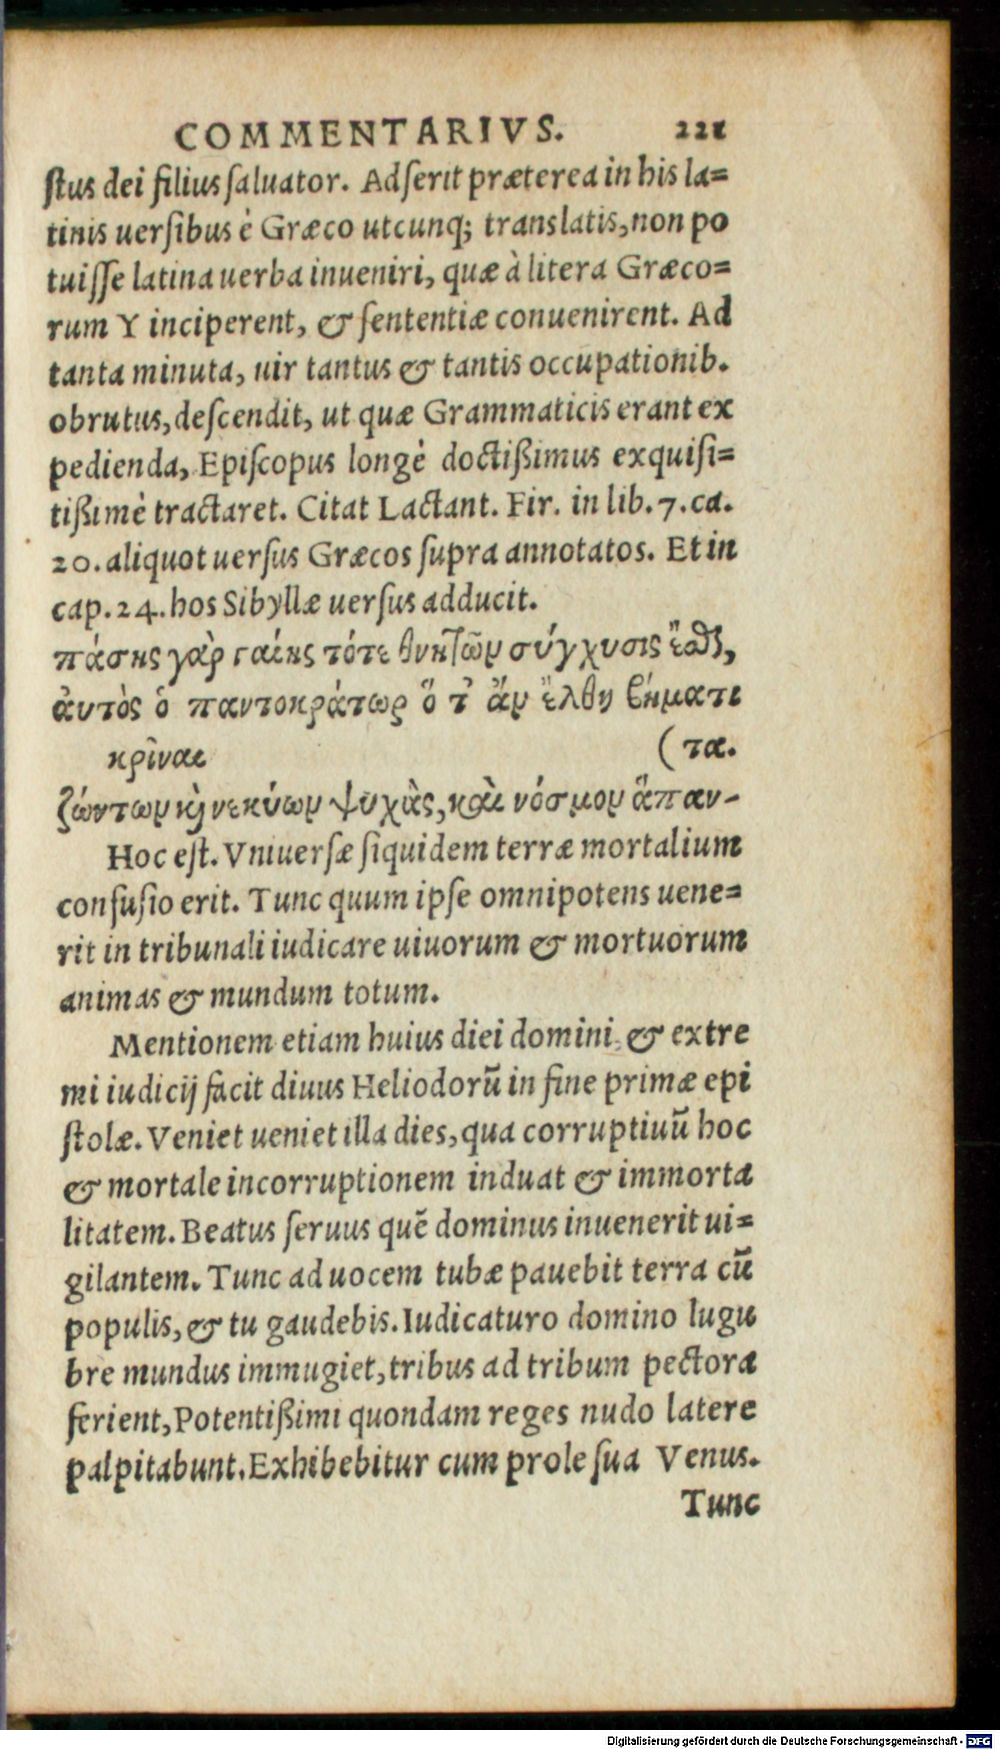 COMMENTARIVS. 221
ſtus dei filius ſaluator. Adſerit præterea in his la=
tinis uerſibus è Græco utcunq; translatis, non po
tuiſſe latina uerba inueniri, quæ à litera Græco=
rum Y inciperent, & ſententiæ conuenirent. Ad
tanta minuta, uir tantus & tantis occupationib.
obrutus, deſcendit, ut quæ Grammaticis erant ex
pedienda, Epiſcopus longè doctißimus exquiſi=
tißimè tractaret. Citat Lactant. Fir. in lib. 7. ca.
20. aliquot uerſus Græcos ſupra annotatos. Et in
cap. 24. hos Sibyllæ uerſus adducit.
πάσης γὰρ γαίης τότε θνητῶν σύγχυσις ἔσθ,
ἀυτὸς ὁ παντοκράτωρ ὅ τ᾽ ἂν ἔλθῃ βήματι
κρῖναι (τα.
ζώντων κ̀ νεκύων ψυχὰς, καὶ κόσμον ἅπαν-
Hoc eſt. Vniuerſæ ſiquidem terræ mortalium
confuſio erit. Tunc quum ipſe omnipotens uene=
rit in tribunali iudicare uiuorum & mortuorum
animas & mundum totum.
Mentionem etiam huius diei domini, & extre
mi iudicij facit diuus Heliodorū in fine primæ epi
ſtolæ. Veniet ueniet illa dies, qua corruptiuū hoc
& mortale incorruptionem induat & immorta
litatem. Beatus ſeruus quē dominus inuenerit ui=
gilantem. Tunc ad uocem tubæ pauebit terra cū
populis, & tu gaudebis. Iudicaturo domino lugu
bre mundus immugiet, tribus ad tribum pectora
ferient, Potentißimi quondam reges nudo latere
palpitabunt. Exhibebitur cum prole ſua Venus.
Tunc
Digitalisierung gefördert durch die Deutsche Forschungsgemeinschaft - DFG